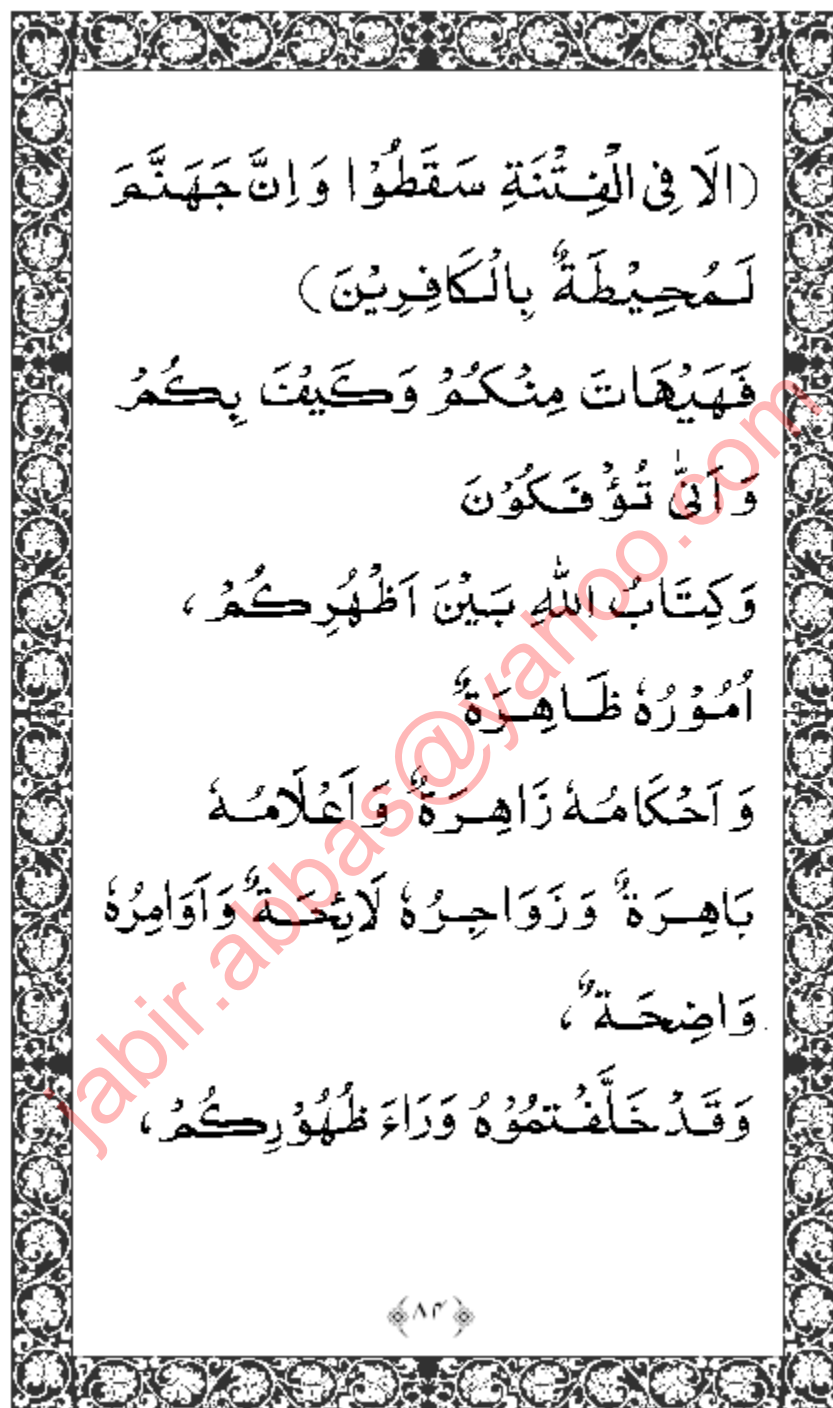 (اَلَا فِی الْفِتْنَةِ سَقَطُوْا وَ اِنَّ جَهَنَّمَ
لَمُحِيْطَةٌ بِالْكَافِرِيْنَ)
فَهَيْهَاتَ مِنْكُمْ وَكَيْفَ بِكُمْ
وَ اَنّٰى تُؤْفَكُوْنَ
وَكِتَابُ اللّٰهِ بَيْنَ اَظْهُرِكُمْ ،
اُمُوْرُهٗ ظَاهِرَةٌ
وَ اَحْكَامُهٗ زَاهِرَةٌ وَ اَعْلَامُهٗ
بَاهِرَةٌ وَ زَوَاجِرُهٗ لَائِحَةٌ وَ اَوَامِرُهٗ
وَاضِحَةٌ ،
وَ قَدْ خَلَّفْتُمُوْهُ وَرَاءَ ظُهُوْرِكُمْ ،
۸۴
jabir.abbas@yahoo.com